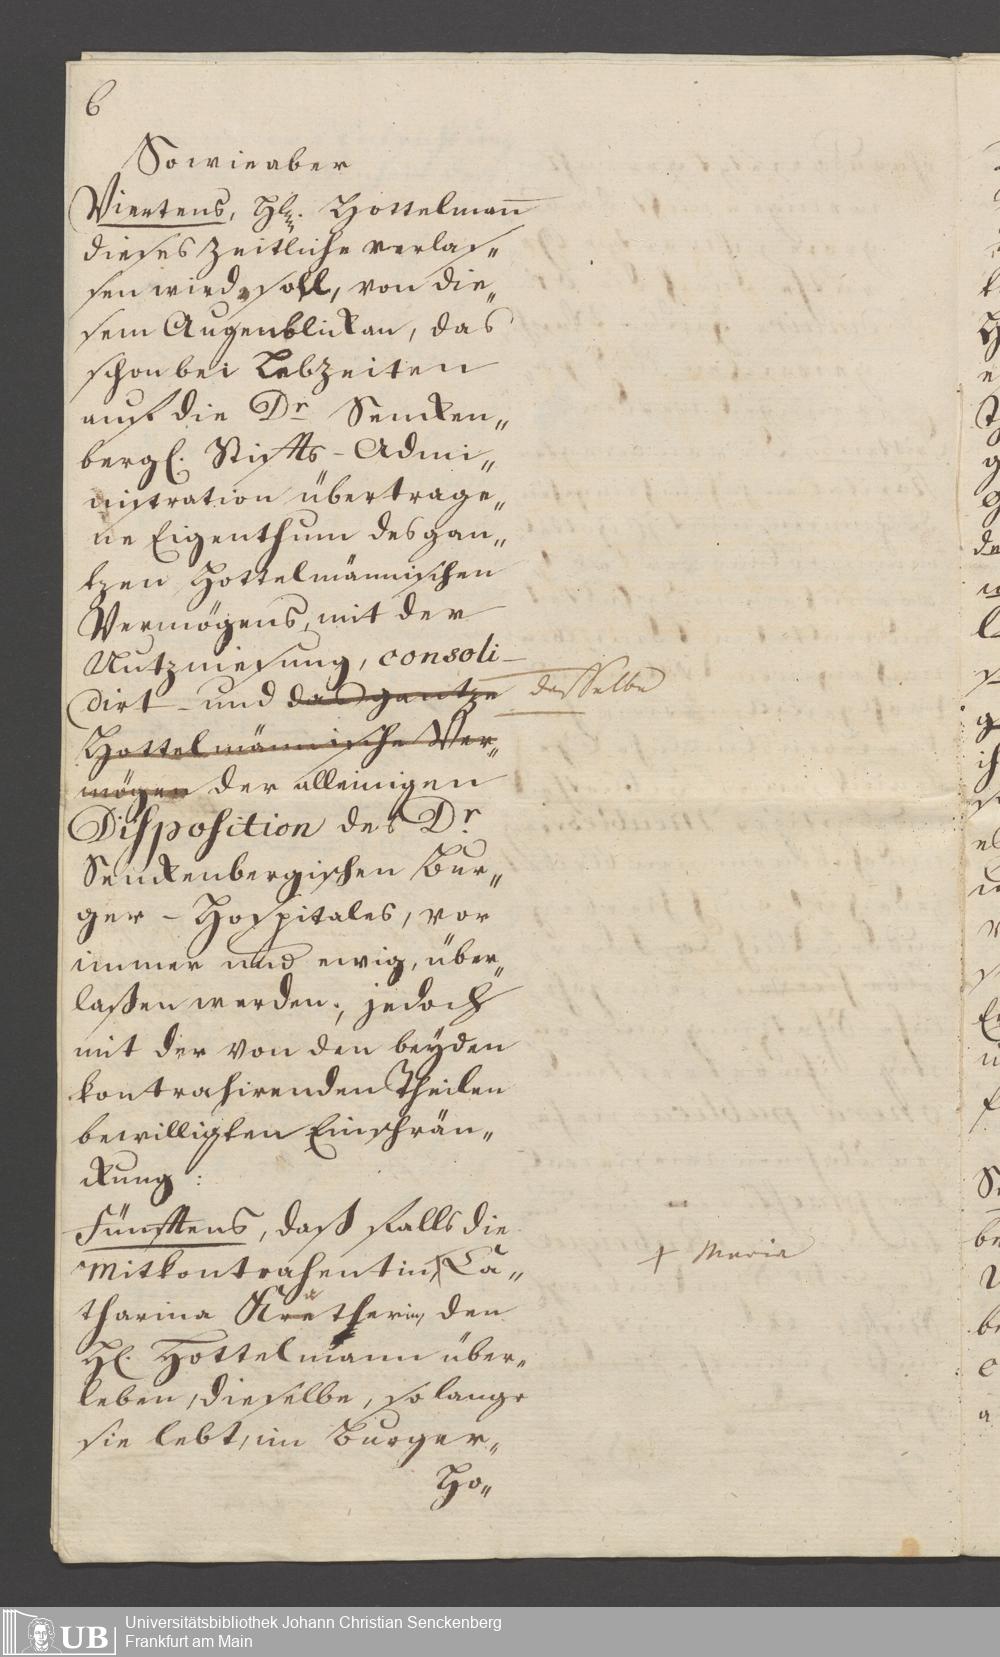 6
Sowie aber
Viertens, Hl. Hottelmann
dieses Zeitliche verlas„
sen wird, soll, von die„
sem Augenblick an, das
schon bei Lebzeiten
auf die Dr Sencken„
bergl. Stiffts - Admi„
nistration übertrage„
ne Eigenthum des gan„
tzen Hottelmännischen
Vermögens, mit der
Nutzniesung, consoli-
dirt - und das gantze desselbe
Hottelmännische Ver„
mögen der alleinigen
Disposition des Dr.
Senckenbergischen Bur„
ger - Hospitales, vor
immer und ewig, über„
laßen werden; jedoch
mit der von den beyden
kontrahirenden Theilen
bewilligten Einschrän„
kung:
Fünfftens, daß falls die
Mitkontrahentin, + Ca„ + Maria
tharina Kretherin, den
Hl. Hottelmann über„
leben, dieselbe, so lange
sie lebt, im Burger„
Ho„
UB
Universitätsbibliothek Johann Christian Senckenberg
Frankfurt am Main